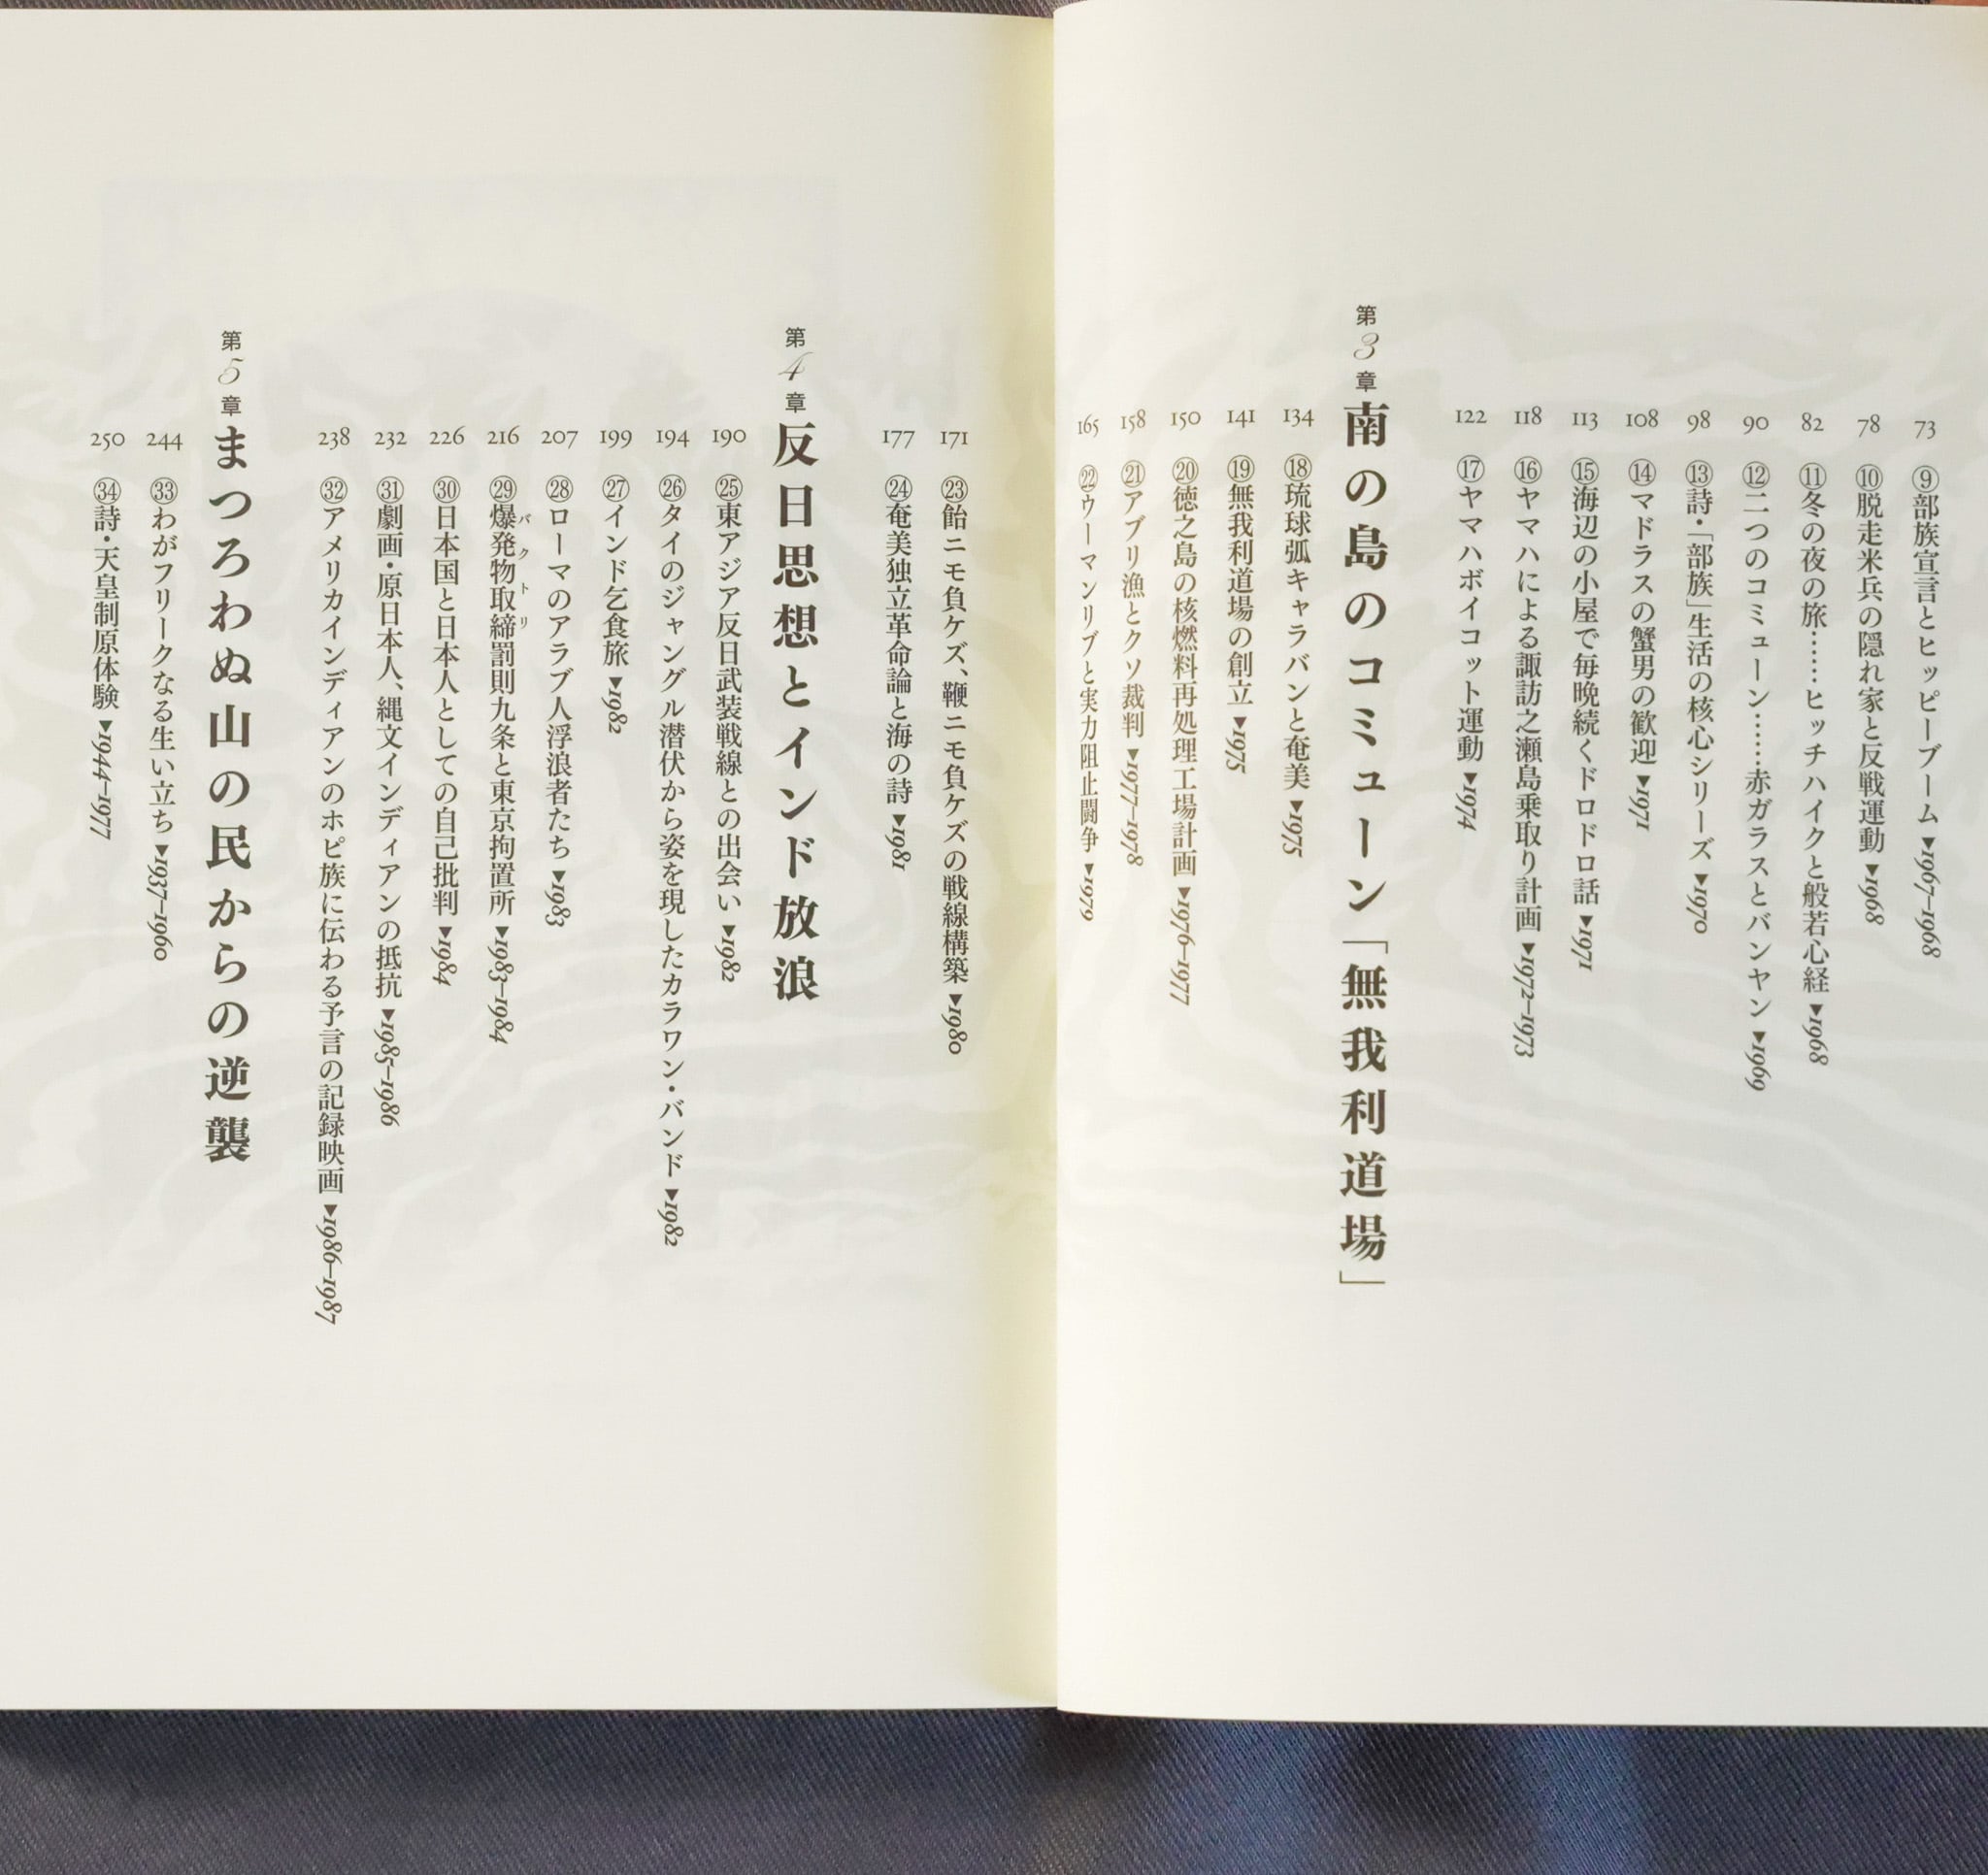 73 ⑨部族宣言とヒッピーブーム ▼1967–1968
78 ⑩脱走米兵の隠れ家と反戦運動 ▼1968
82 ⑪冬の夜の旅……ヒッチハイクと般若心経 ▼1968
90 ⑫二つのコミューン……赤ガラスとバンヤン ▼1969
98 ⑬詩・「部族」生活の核心シリーズ ▼1970
108 ⑭マドラスの蟹男の歓迎 ▼1971
113 ⑮海辺の小屋で毎晩続くドロドロ話 ▼1971
118 ⑯ヤマハによる諏訪之瀬島乗取り計画 ▼1972–1973
122 ⑰ヤマハボイコット運動 ▼1974
第3章 南の島のコミューン「無我利道場」
134 ⑱琉球弧キャラバンと奄美 ▼1975
141 ⑲無我利道場の創立 ▼1975
150 ⑳徳之島の核燃料再処理工場計画 ▼1976–1977
158 ㉑アブリ漁とクソ裁判 ▼1977–1978
165 ㉒ウーマンリブと実力阻止闘争 ▼1979
171 ㉓飴ニモ負ケズ、鞭ニモ負ケズの戦線構築 ▼1980
177 ㉔奄美独立革命論と海の詩 ▼1981
第4章 反日思想とインド放浪
190 ㉕東アジア反日武装戦線との出会い ▼1982
194 ㉖タイのジャングル潜伏から姿を現したカラワン・バンド ▼1982
199 ㉗インド乞食旅 ▼1982
207 ㉘ローマのアラブ人浮浪者たち ▼1983
216 ㉙爆発物取締罰則九条と東京拘置所 ▼1983–1984
バクトリ
226 ㉚日本国と日本人としての自己批判 ▼1984
232 ㉛劇画・原日本人、縄文インディアンの抵抗 ▼1985–1986
238 ㉜アメリカインディアンのホピ族に伝わる予言の記録映画 ▼1986–1987
第5章 まつろわぬ山の民からの逆襲
244 ㉝わがフリークなる生い立ち ▼1937–1960
250 ㉞詩・天皇制原体験 ▼1944–1977